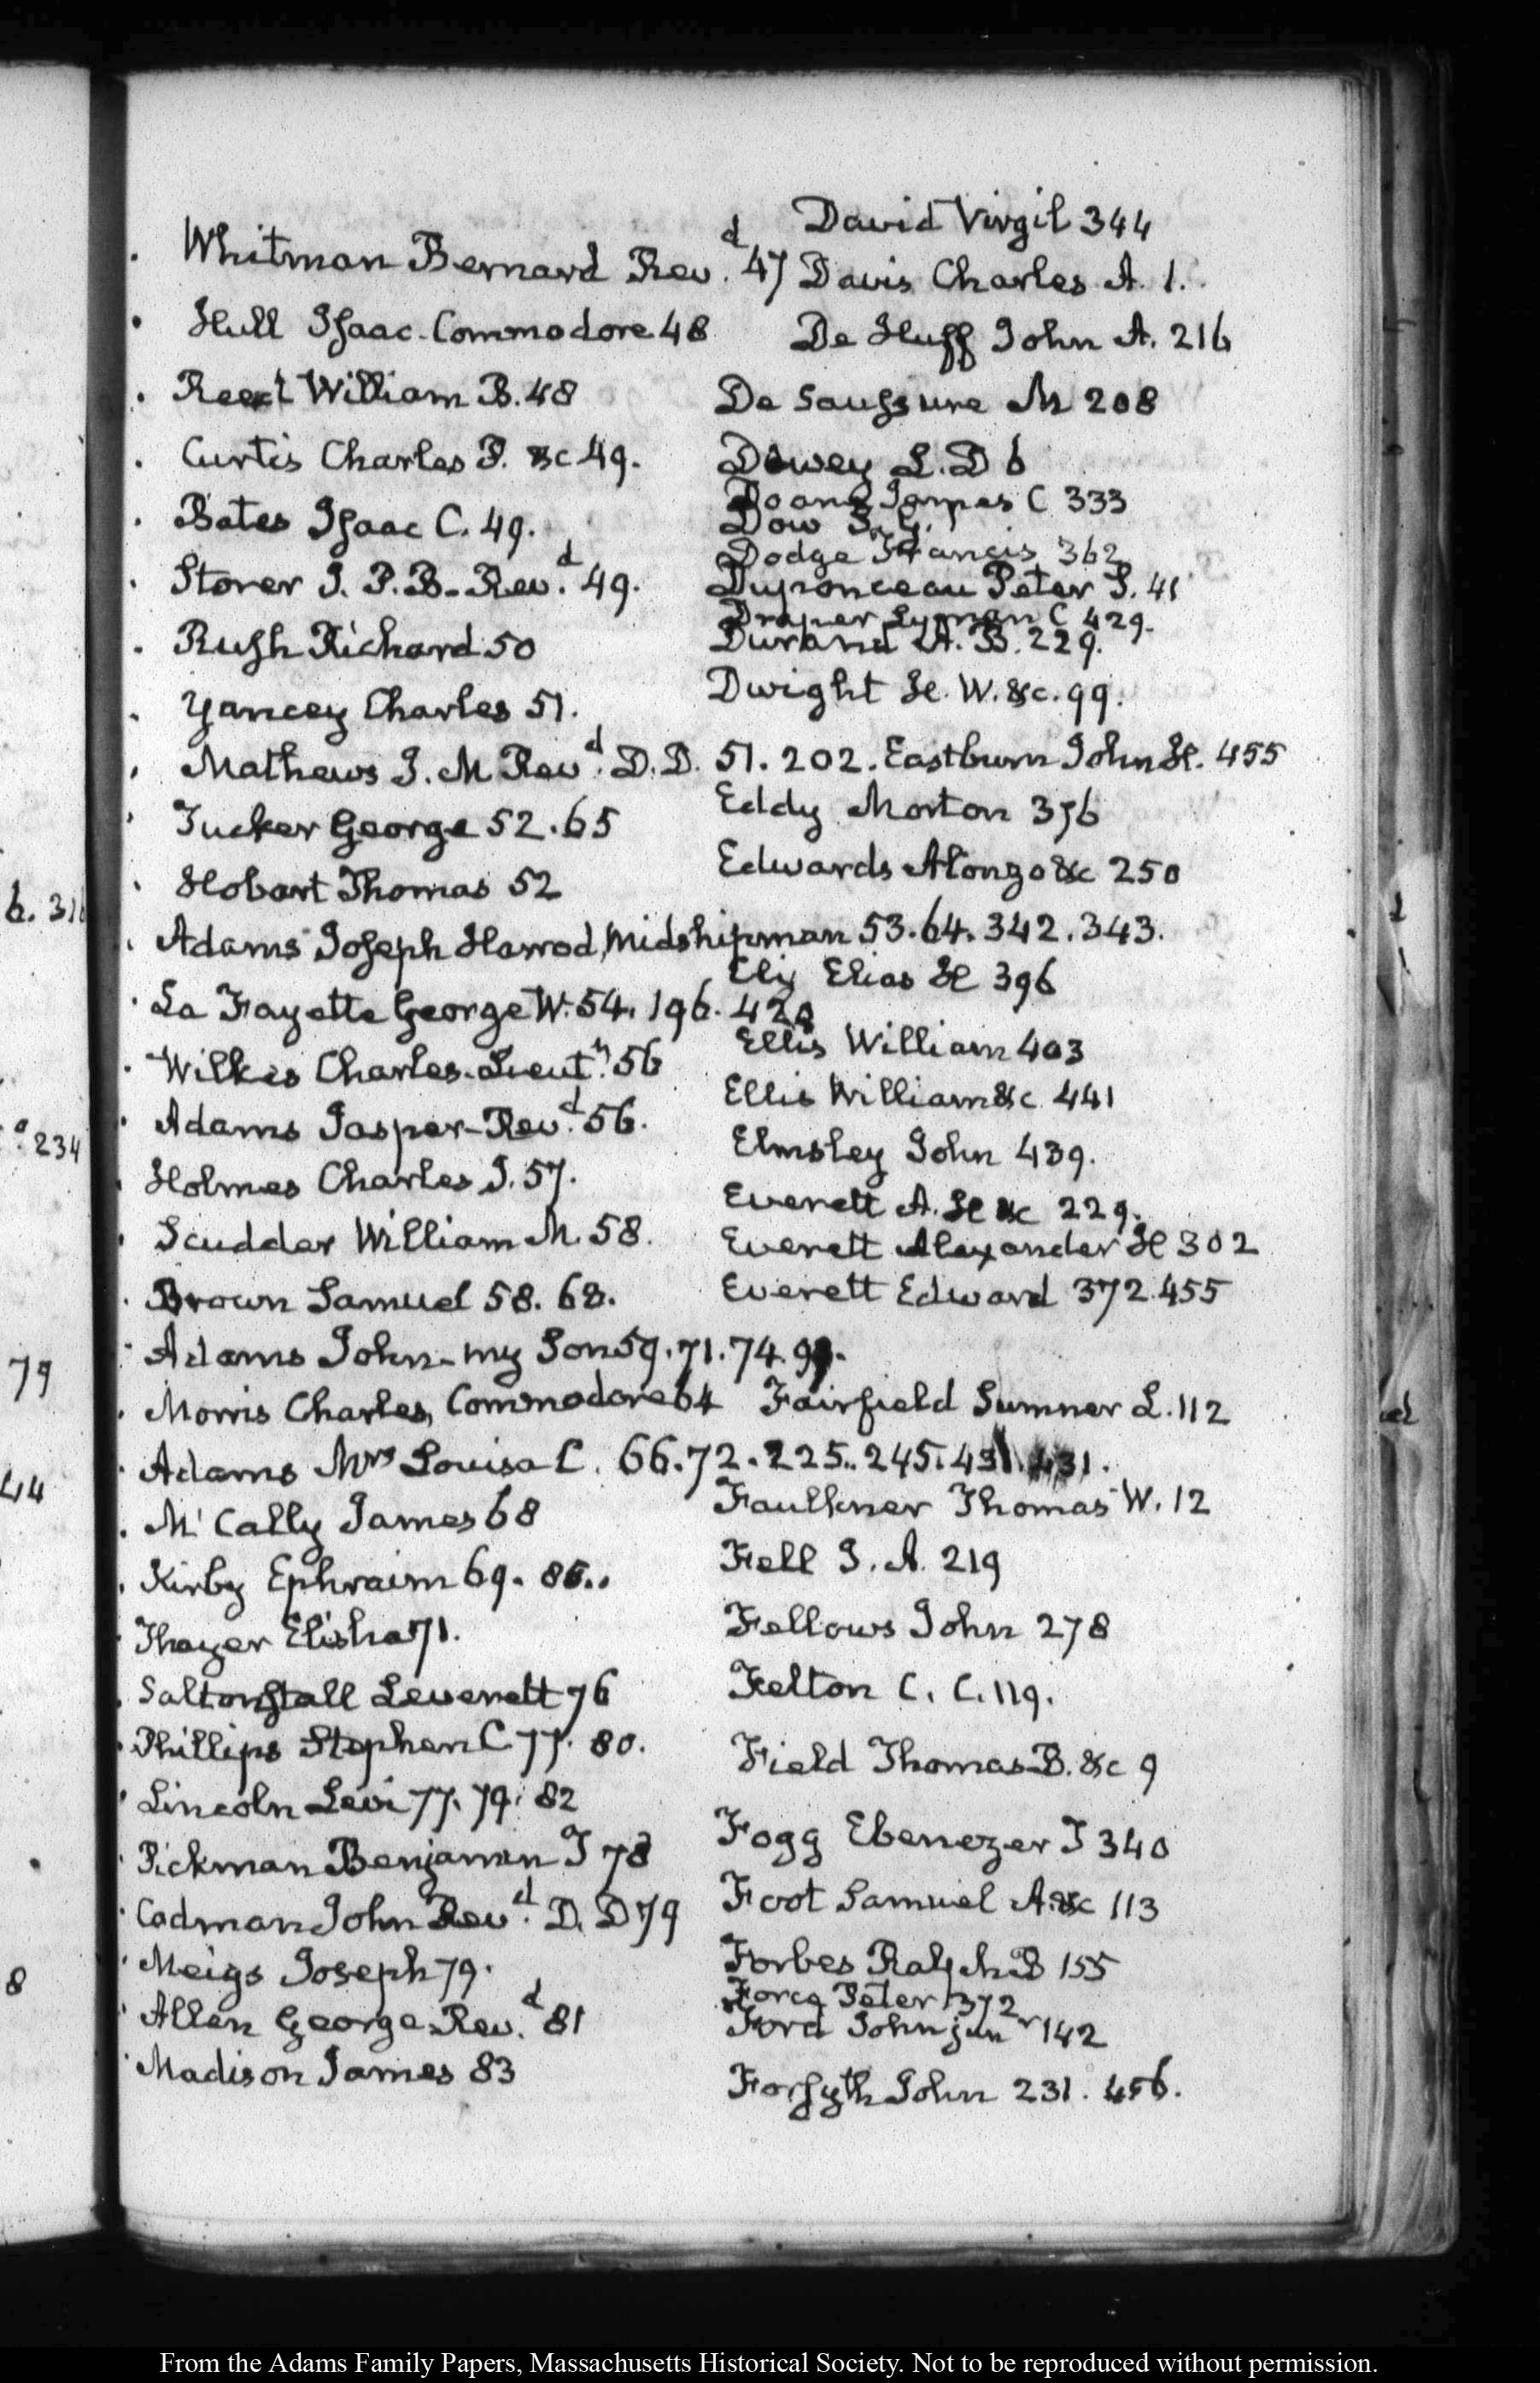 Whitman Bernard Revd. 47
Hull Isaac. Commodore 48
Reed William B. 48
Curtis Charles P. &c 49.
Bates Isaac C. 49.
Storer J. P. B. Revd. 49.
Rush Richard 50
Yancey Charles 51.
Mathews J. M Revd. D. D. 51. 202.
Tucker George 52. 65
Hobart Thomas 52
Adams Joseph Harrod, Midshipman 53. 64. 342. 343.
La Fayette George W. 54. 196. 428
Wilkes Charles. Lieutt. 56
Adams Jasper-Revd. 56.
Holmes Charles J. 57.
Scudder William M. 58.
Brown Samuel 58. 68.
Adams John- my Son 59. 71. 74.
Morris Charles, Commodore 64
Adams Mrs Louisa C. 66. 72. 225. 245. 431.
McCally James 68
Kirby Ephraim 69. 86.
Thayer Elisha 71.
Saltonstall Leverett 76
Phillips Stephen C 77. 80.
Lincoln Levi 77. 79. 82
Pickman Benjamin T 78
Codman John Revd. D. D 79
Meigs Joseph 79.
Allen George Revd. 81
Madison James 83
David Virgil 344
Davis Charles A. 1.
De Huff John A. 216
De Saussure M 208
Dewey L. D 6
Doane James C 333
Dow
Dodge Francis 362
Duponceau Peter S. 41
Draper Lyman C 429.
Durand A. B. 229.
Dwight H. W. &c. 99.
Eastburn John H. 455
Eddy Morton 376
Edwards Alonzo &c 250
Ely Elias H 396
Ellis William 403
Ellis William &c 441
Elmsley John 439.
Everett A. H &c 229.
Everett Alexander H 302
Everett Edward 372. 455
Fairfield Sumner L. 112
Faulkner Thomas W. 12
Fell J. A. 219
Fellows John 278
Felton C. C. 119.
Field Thomas B. &c 9
Fogg Ebenezer T 340
Foot Samuel A. &c 113
Forbes Ralph B 155
Force Peter 372
Ford John junr 142
Forsyth John 231. 456.
6. 316
234
79
44
8
From the Adams Family Papers, Massachusetts Historical Society. Not to be reproduced without permission.